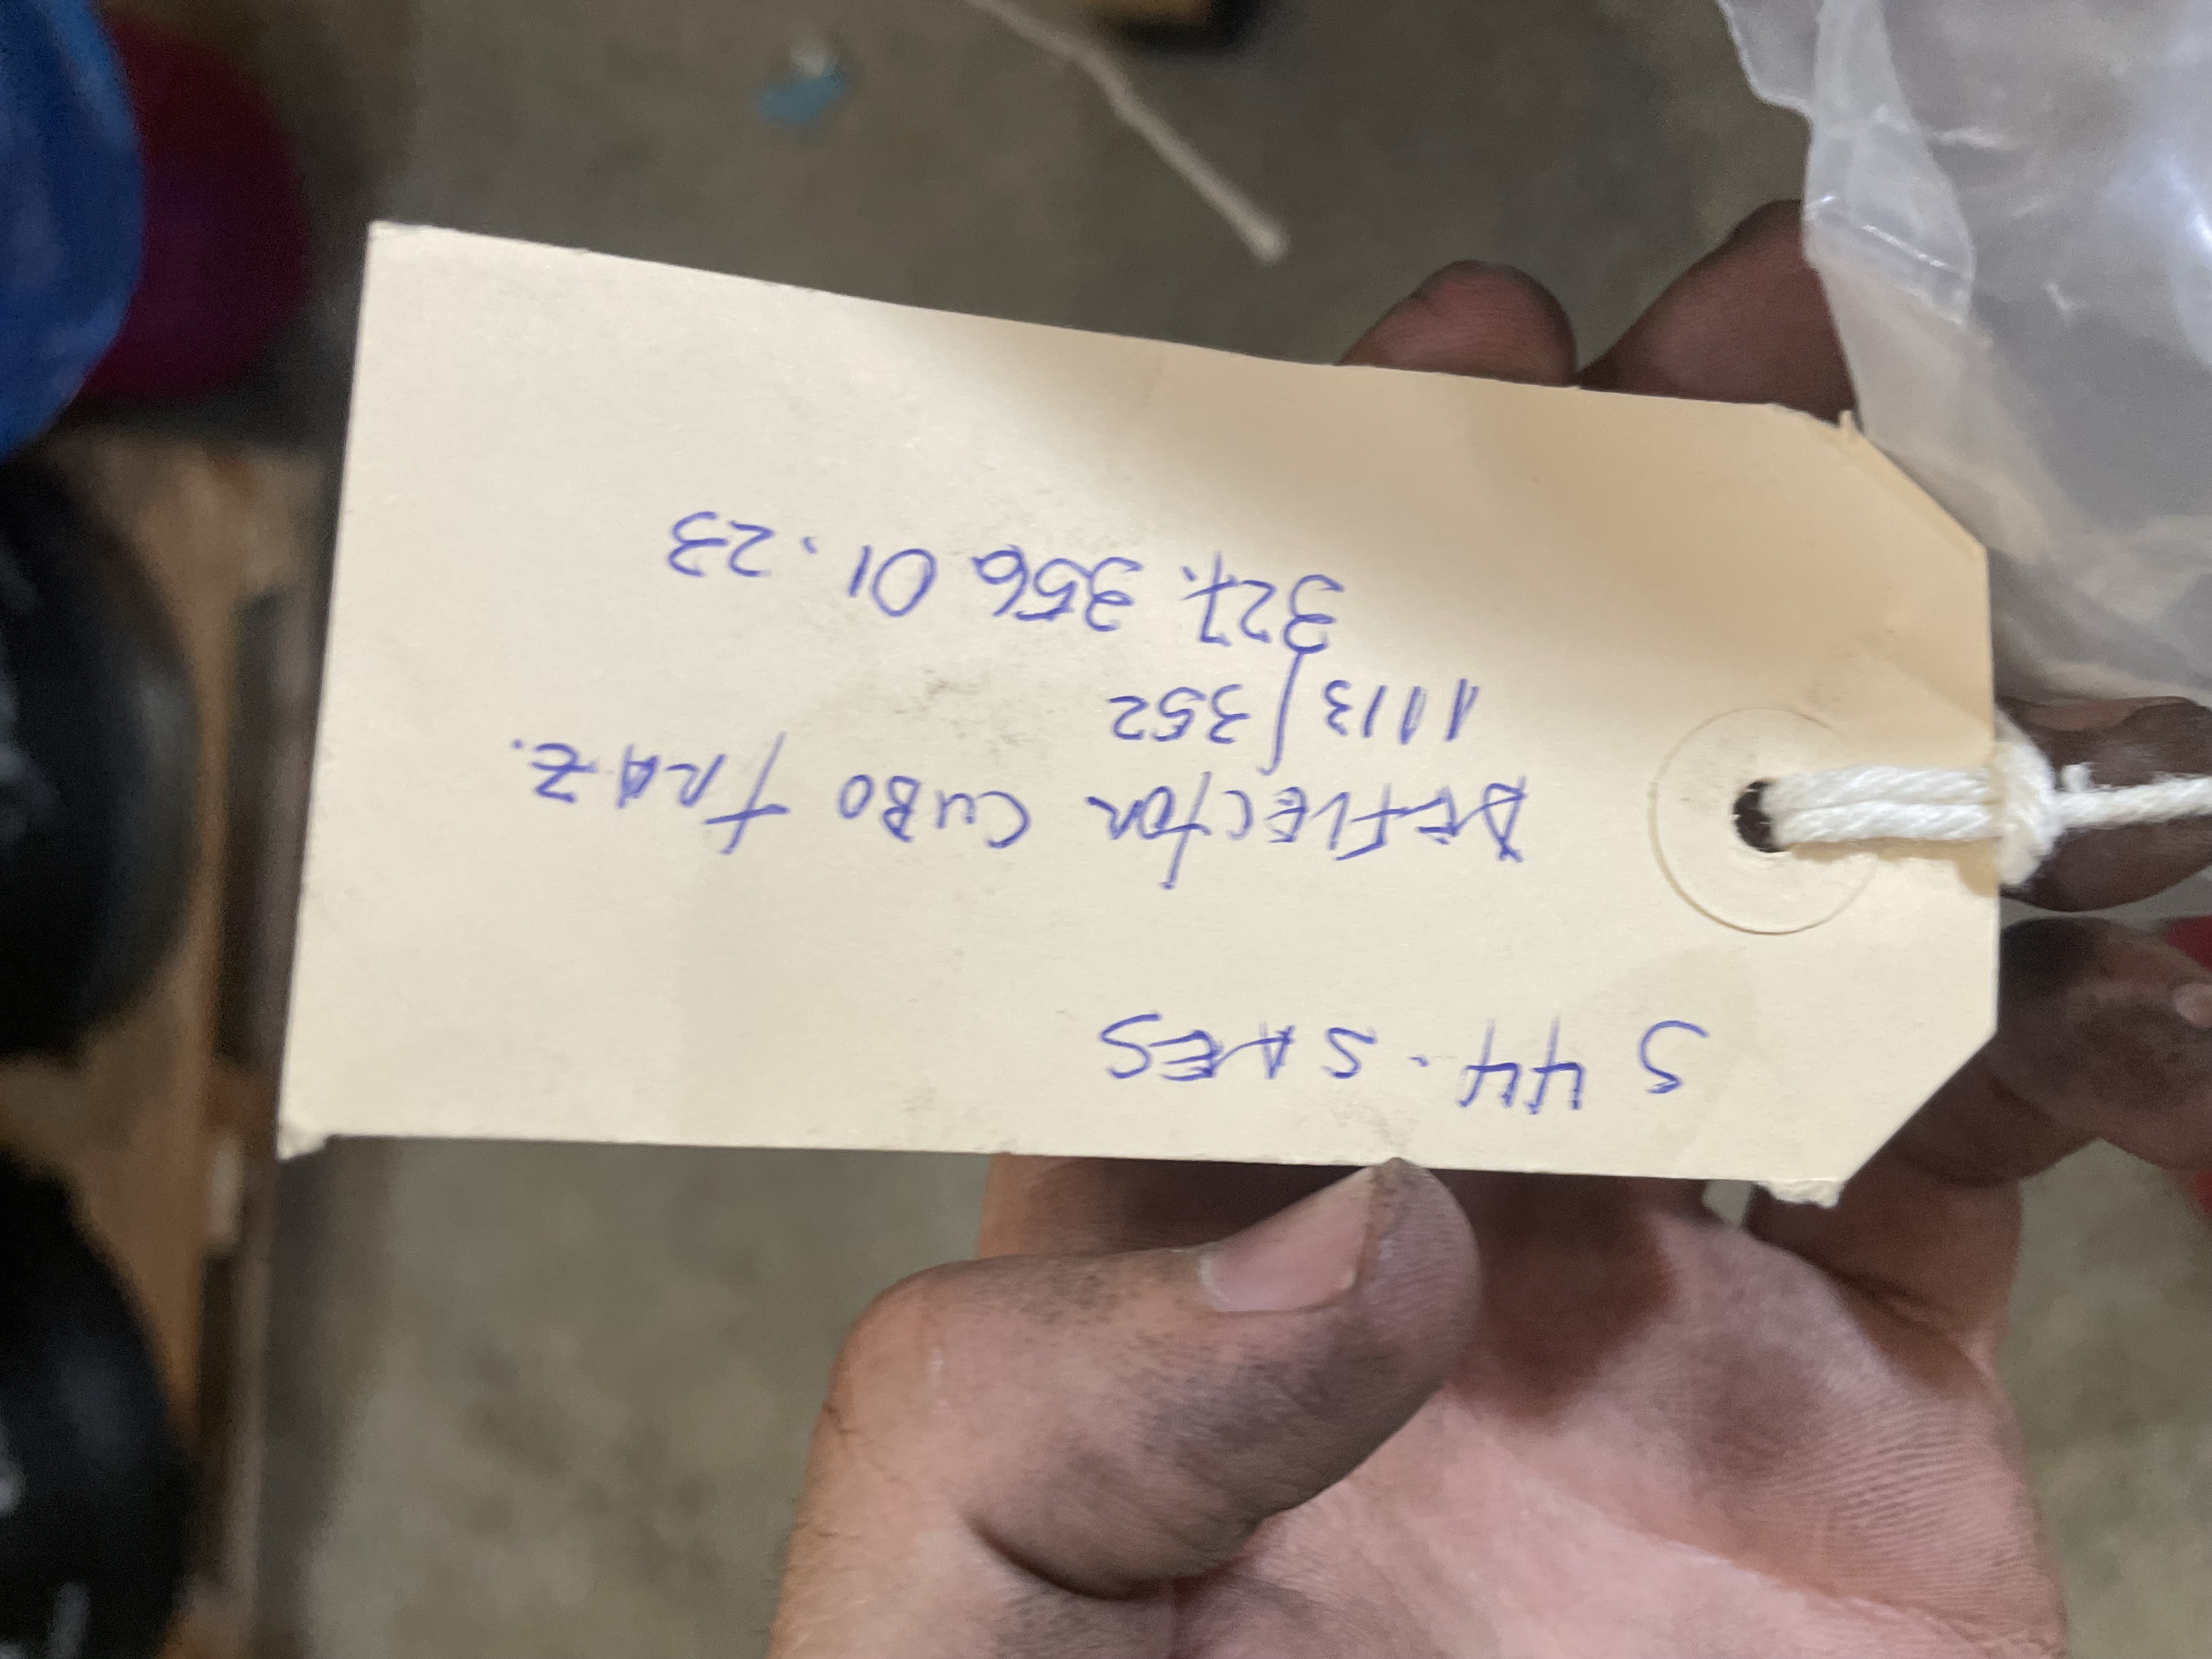 S 44. SAES
DEFLECTOR CUBO TRAZ.
1113/352
327. 356 01. 23